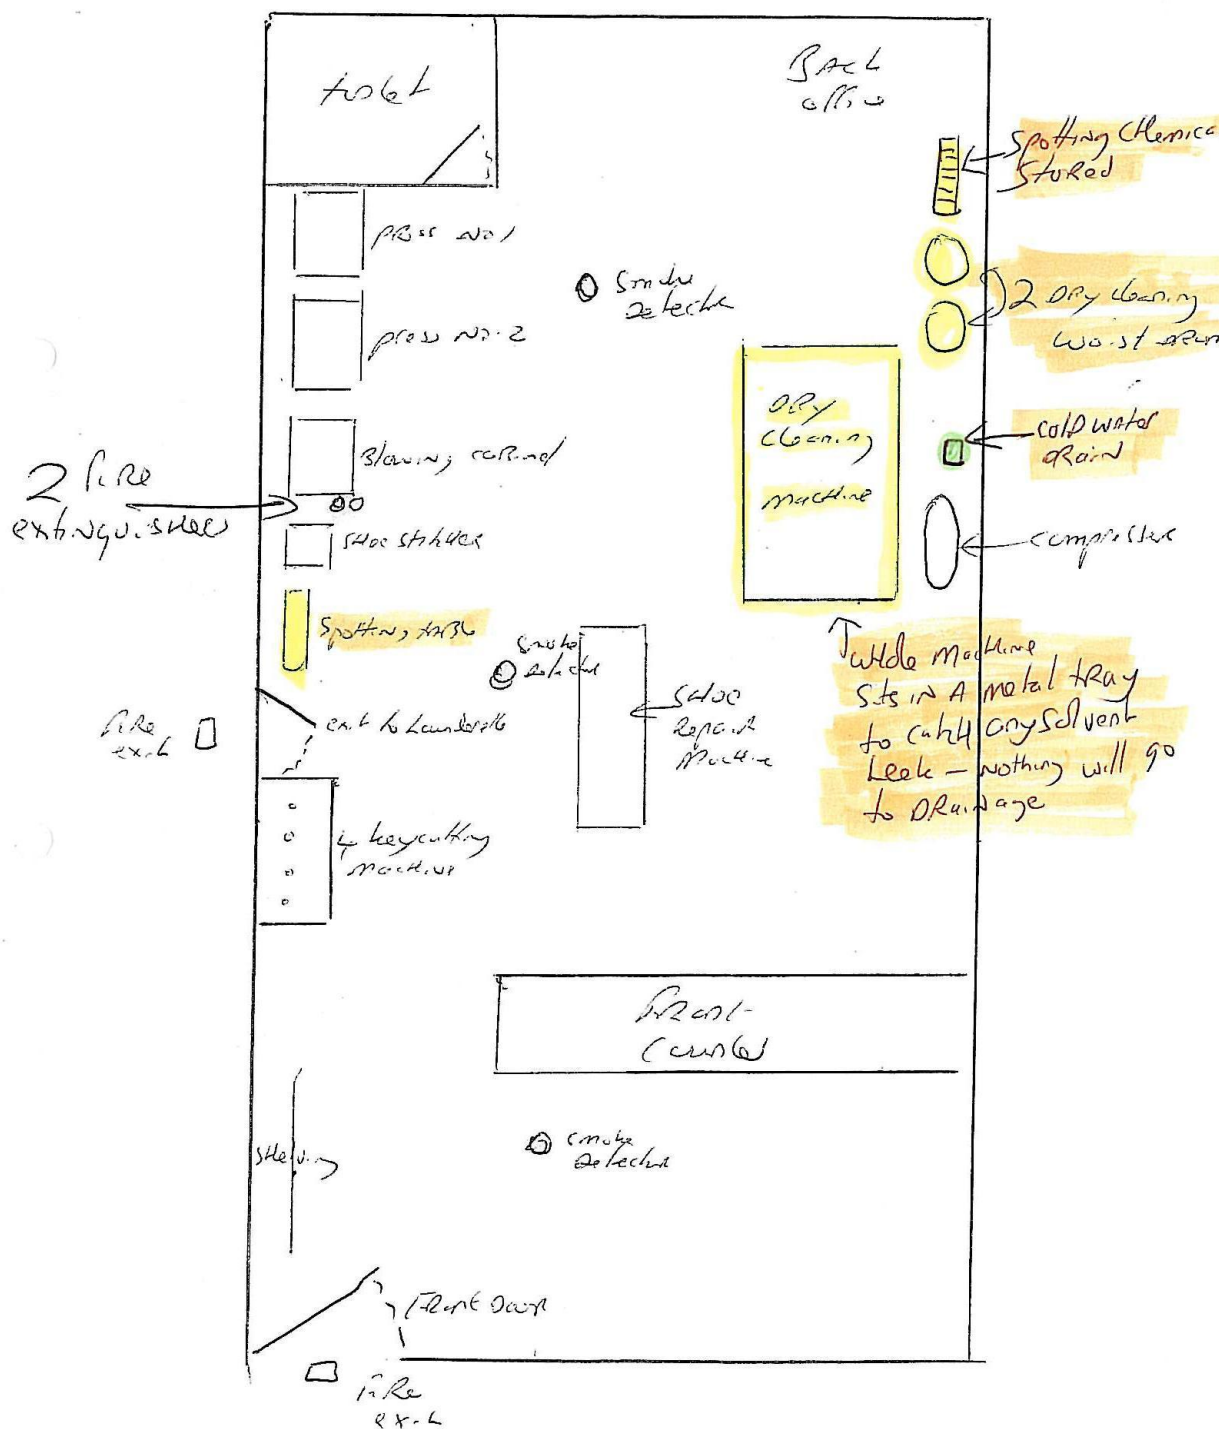 toilet
Back
office
Spotting Chemica
Stored
press No 1
Smoke
Detector
2 Dry cleaning
waist drum
press No. 2
Dry
Cleaning
Machine
cold water
Drain
Blowing cabined
2 Fire
extinquisher
shoe stitcher
compressor
Spotting table
Smoke
Detector
whole Machine
sits in A metal tray
to catch any solvent
Leek – nothing will go
to Drainage
Shoe
Repair
Machine
Fire
exit
exit to Launderette
4 keycutting
Machine
Front
Counter
Shelving
Smoke
Detector
Front Door
Fire
exit